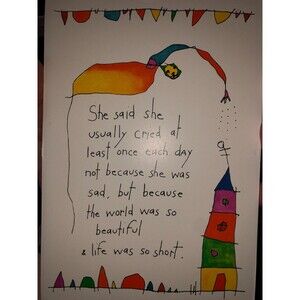 She said she
usually cried at
least once each day
not because she was
sad, but because
the world was so
beautiful
& life was so short.